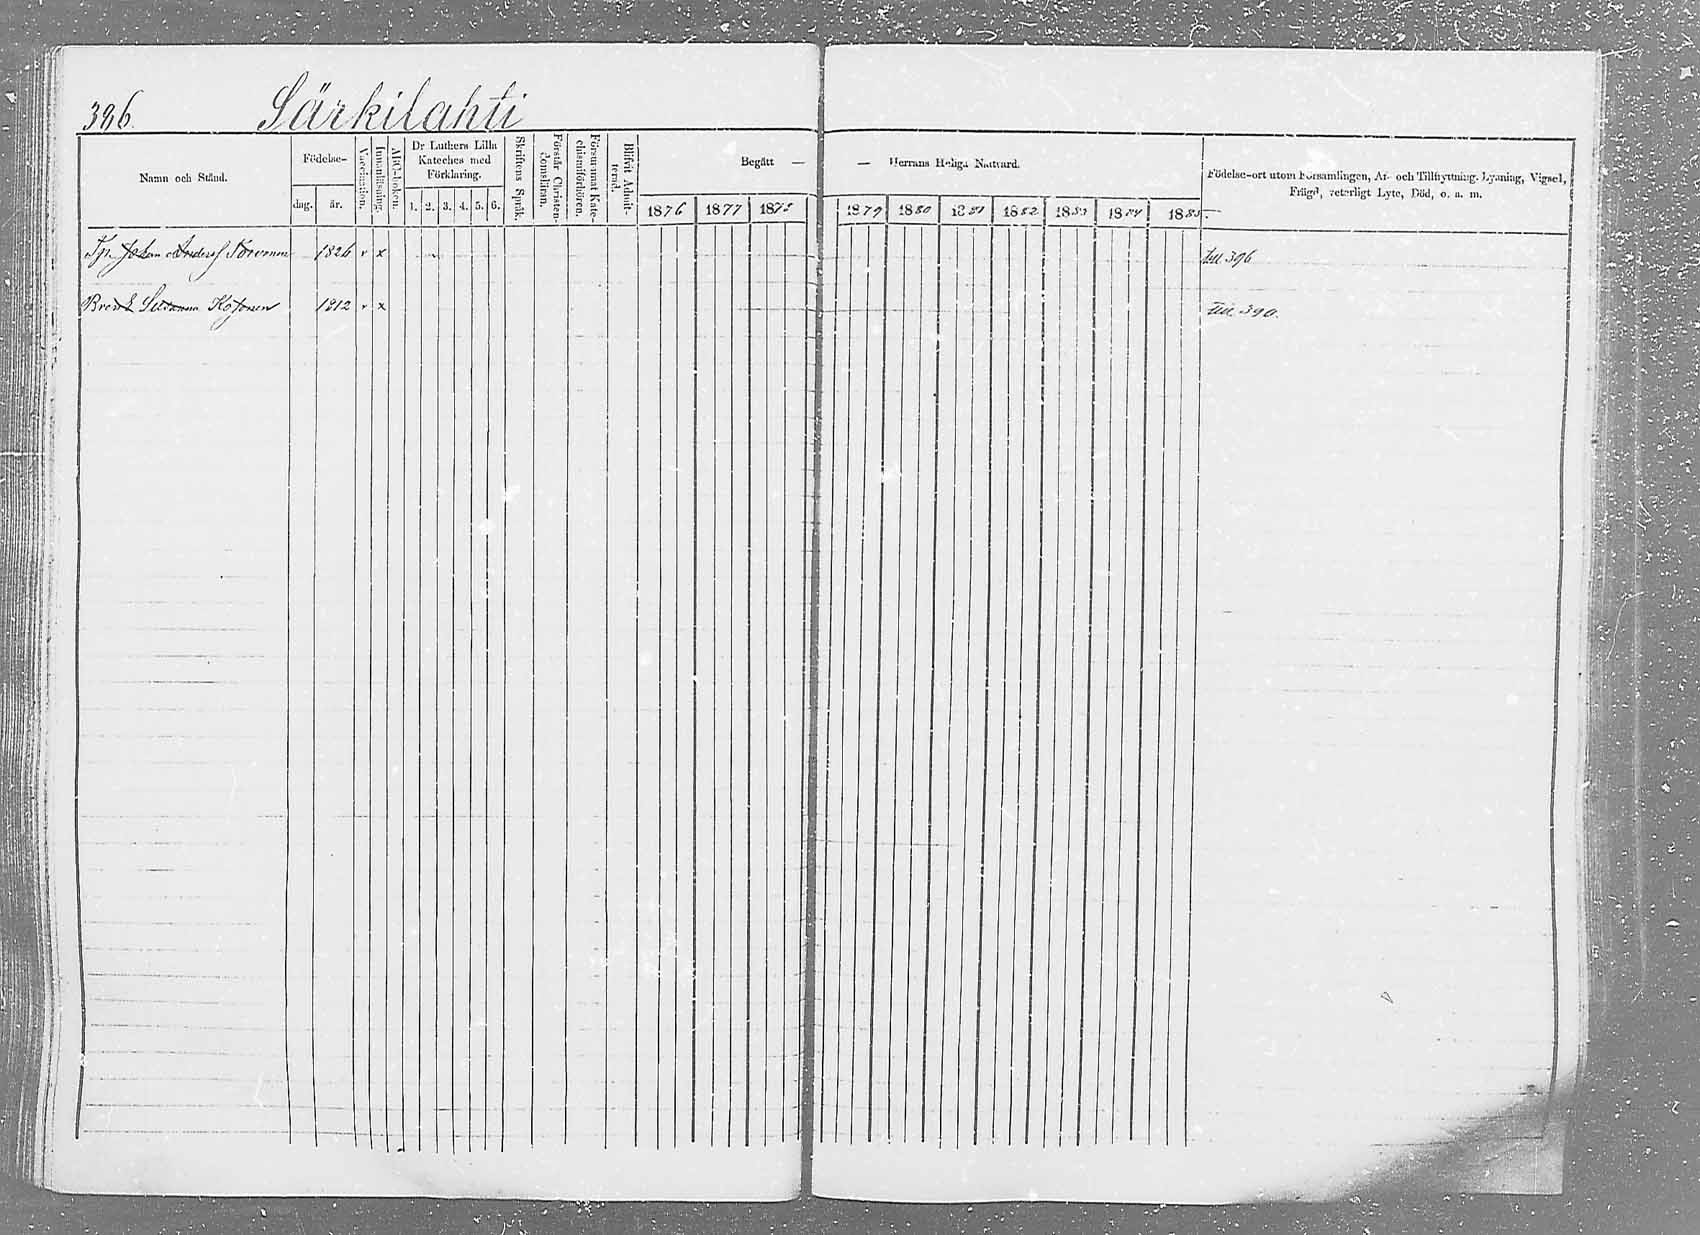 386. Särkilahti
Namn och Stånd.
Födelse-
dag.
år.
Vaccination.
Innanläsning.
ABC-boken.
Dr Luthers Lilla
Kateches med
Förklaring.
1. 2. 3. 4. 5. 6.
Skriftens Språk.
Förstår Christen-
domsläran.
Försummat Kate-
chismiförhören.
Blifvit Admit-
terad.
Begått — — Herrans Heliga Nattvard.
1876 1877 1878 1879 1880 1881 1882 1883 1884 1885
Födelse-ort utom Församlingen, Af- och Tillflyttning, Lysning, Vigsel,
Frägd, veterligt Lyte, Död, o. a. m.
Johan Anders 1826 v x till 396
Susanna 1812 v x till 390.